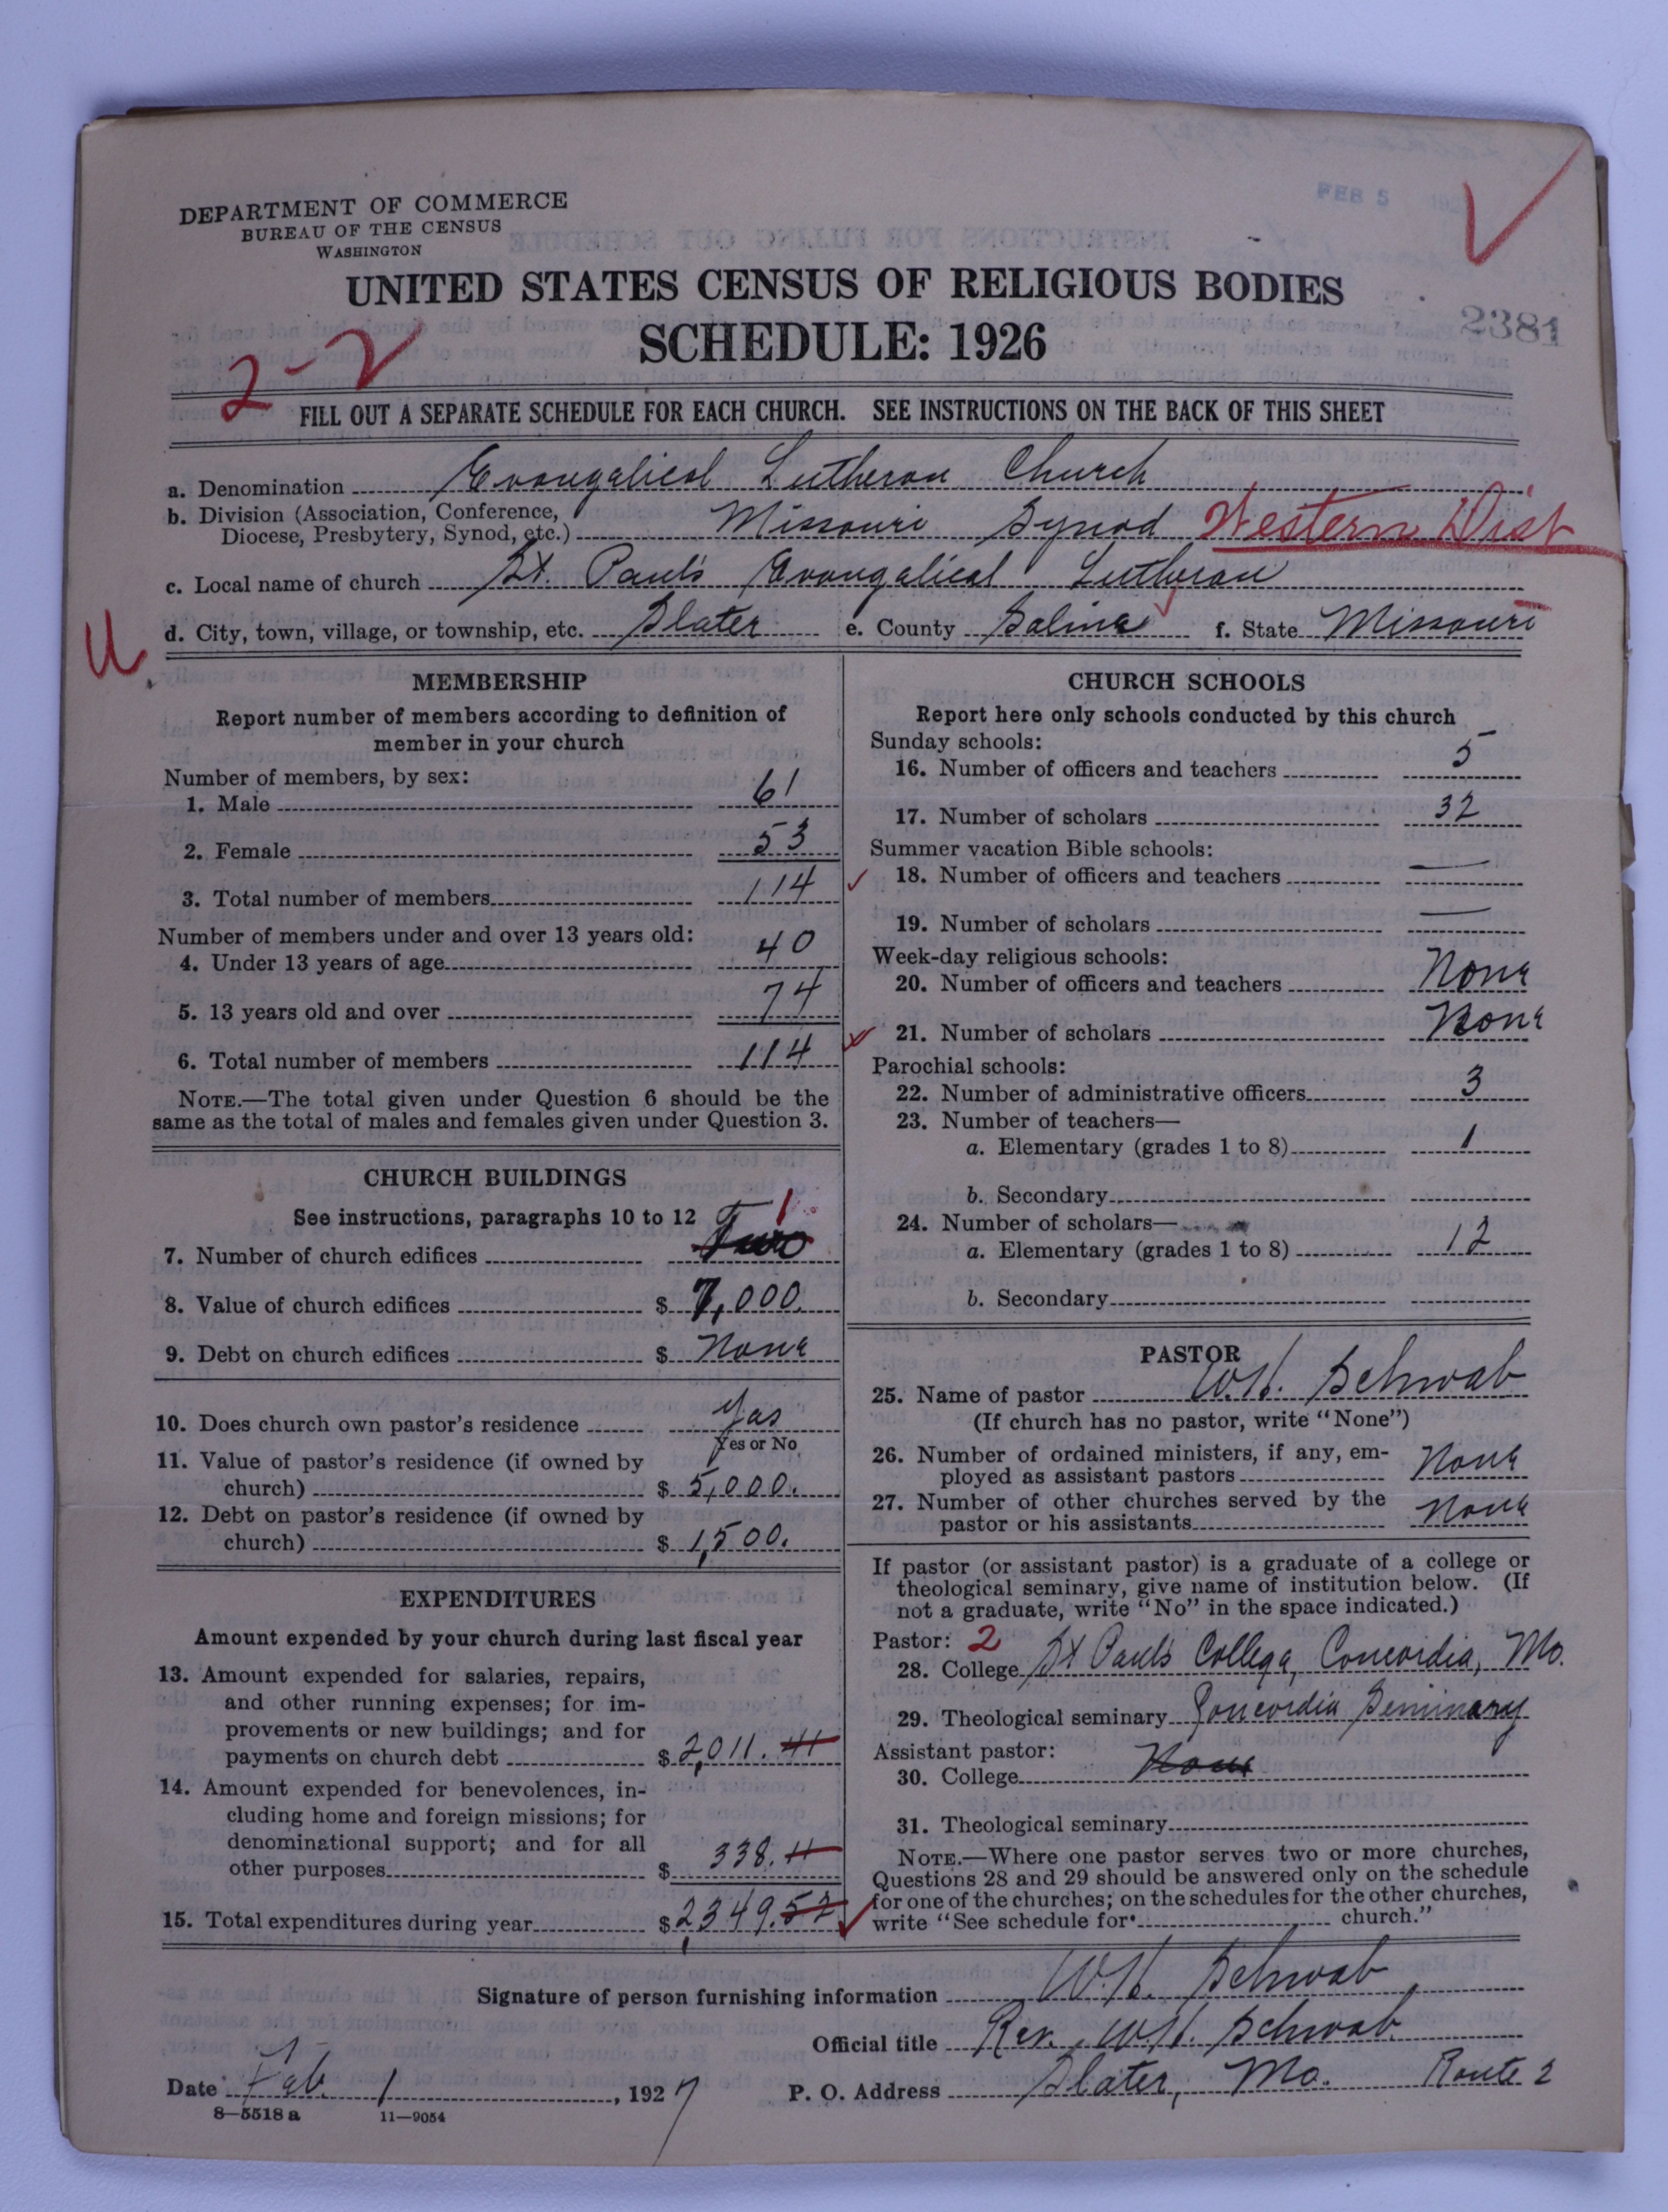 FEB 5 192
DEPARTMENT OF COMMERCE
BUREAU OF THE CENSUS
WASHINGTON
UNITED STATES CENSUS OF RELIGIOUS BODIES
2381
SCHEDULE: 1926
2-2
FILL OUT A SEPARATE SCHEDULE FOR EACH CHURCH. SEE INSTRUCTIONS ON THE BACK OF THIS SHEET
a. Denomination Evangelical Lutheran Church
b. Division (Association, Conference,
Diocese, Presbytery, Synod, etc.) Missouri Synod Western Dist
c. Local name of church St. Paul's Evangelical Lutheran
d. City, town, village, or township, etc. Slater e. County Saline f. State Missouri
U.
MEMBERSHIP
Report number of members according to definition of
member in your church
Number of members, by sex:
1. Male 61
2. Female 53
3. Total number of members 114
Number of members under and over 13 years old:
4. Under 13 years of age 40
5. 13 years old and over 74
6. Total number of members 114
NOTE.—The total given under Question 6 should be the
same as the total of males and females given under Question 3.
CHURCH BUILDINGS
See instructions, paragraphs 10 to 12
7. Number of church edifices Two 1
8. Value of church edifices $ 7,000.
9. Debt on church edifices $ None
10. Does church own pastor's residence Yes
Yes or No
11. Value of pastor's residence (if owned by
church) $ 5,000.
12. Debt on pastor's residence (if owned by
church) $ 1,500.
EXPENDITURES
Amount expended by your church during last fiscal year
13. Amount expended for salaries, repairs,
and other running expenses; for im-
provements or new buildings; and for
payments on church debt $ 2,011. 41
14. Amount expended for benevolences, in-
cluding home and foreign missions; for
denominational support; and for all
other purposes $ 338. 11
15. Total expenditures during year $ 2,349.52
CHURCH SCHOOLS
Report here only schools conducted by this church
Sunday schools:
16. Number of officers and teachers 5
17. Number of scholars 32
Summer vacation Bible schools:
18. Number of officers and teachers —
19. Number of scholars —
Week-day religious schools:
20. Number of officers and teachers None
21. Number of scholars None
Parochial schools:
22. Number of administrative officers 3
23. Number of teachers—
a. Elementary (grades 1 to 8) 1
b. Secondary
24. Number of scholars—
a. Elementary (grades 1 to 8) 12
b. Secondary
PASTOR
25. Name of pastor W.H. Schwab
(If church has no pastor, write "None")
26. Number of ordained ministers, if any, em-
ployed as assistant pastors None
27. Number of other churches served by the
pastor or his assistants None
If pastor (or assistant pastor) is a graduate of a college or
theological seminary, give name of institution below. (If
not a graduate, write "No" in the space indicated.)
Pastor: 2
28. College St Paul's College, Concordia, Mo.
29. Theological seminary Concordia Seminary
Assistant pastor:
30. College None
31. Theological seminary
NOTE.—Where one pastor serves two or more churches,
Questions 28 and 29 should be answered only on the schedule
for one of the churches; on the schedules for the other churches,
write "See schedule for church."
Signature of person furnishing information W.H. Schwab
Official title Rev. W.H. Schwab
Date Feb. 1, 1927 P. O. Address Slater, Mo. Route 2
8—5518 a 11—9054